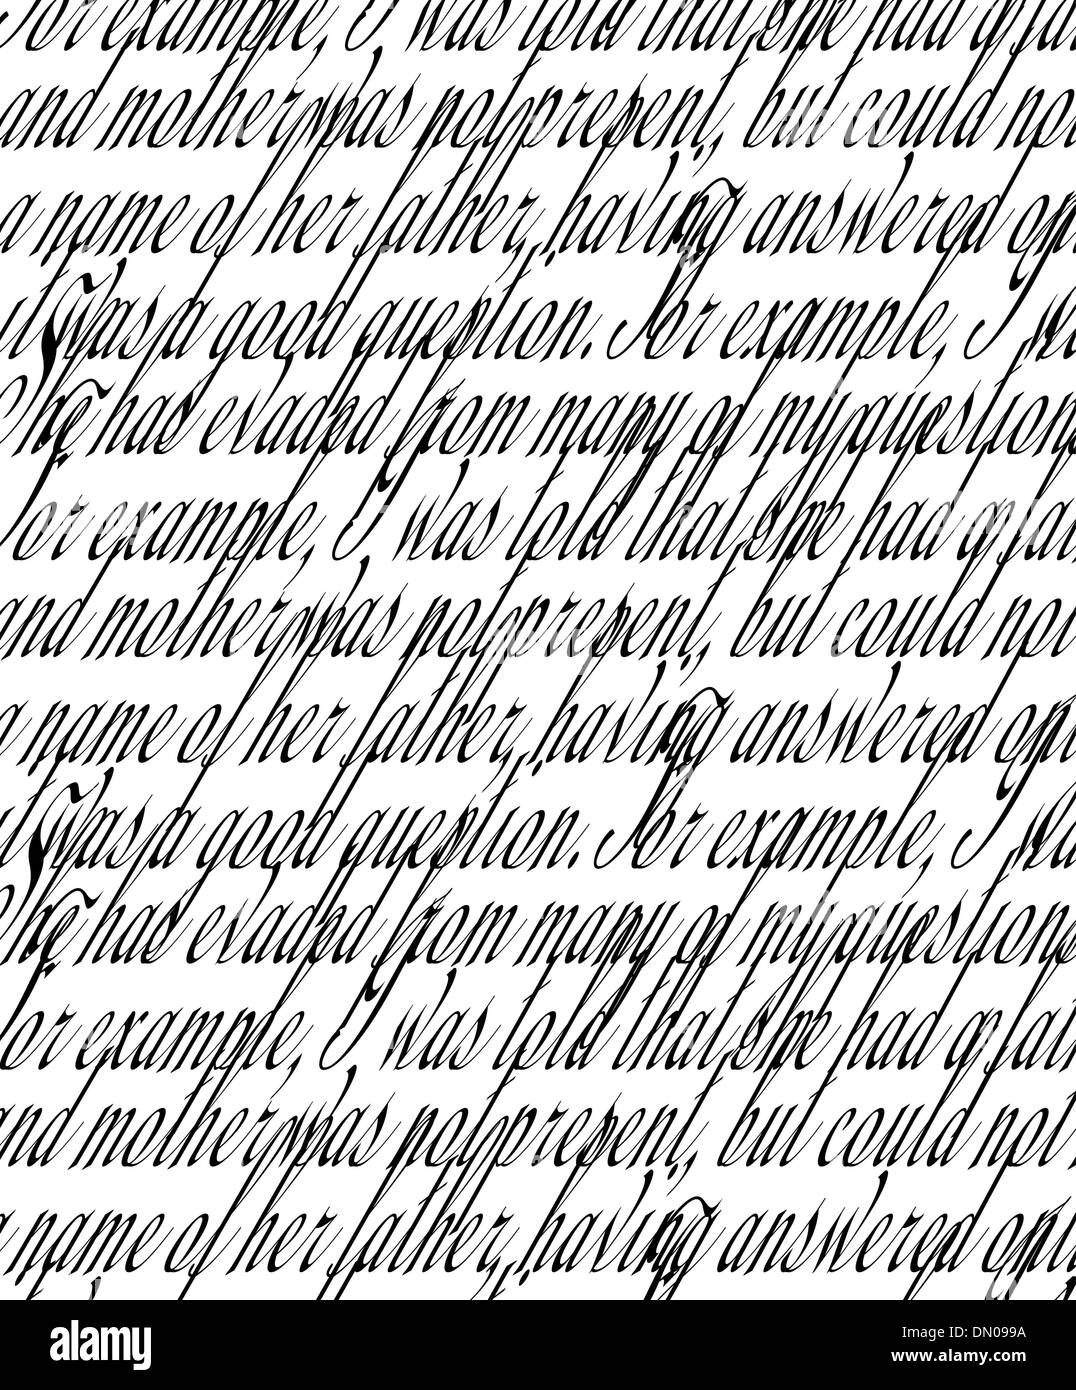 For example, I was told that she had a fat
and mother was not present, but could not
a name of her father, having answered on
It was a good question. For example, I wa
She has evaded from many of my questions
For example, I was told that she had a fat
and mother was not present, but could not
a name of her father, having answered on
It was a good question. For example, I wa
She has evaded from many of my questions
For example, I was told that she had a fat
and mother was not present, but could not
a name of her father, having answered on
alamy
Image ID: DN099A
www.alamy.com